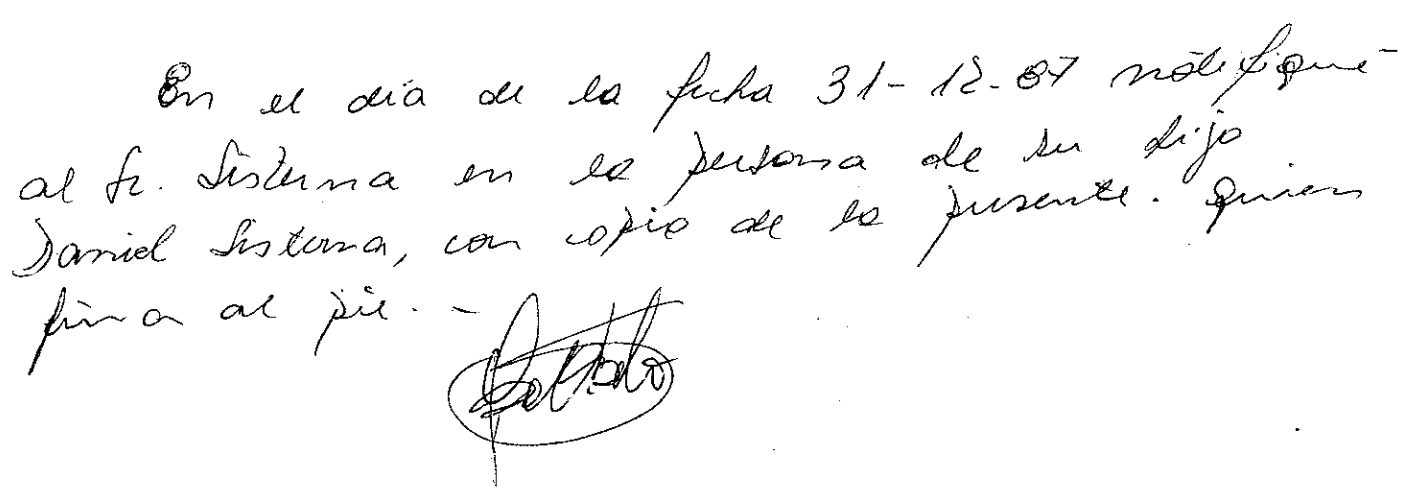 En el día de la fecha 31-12-87 notifiqué
al Sr. Sisterna en la persona de su hijo
Daniel Sisterna, con copia de la presente. Quien
firma al pie. -